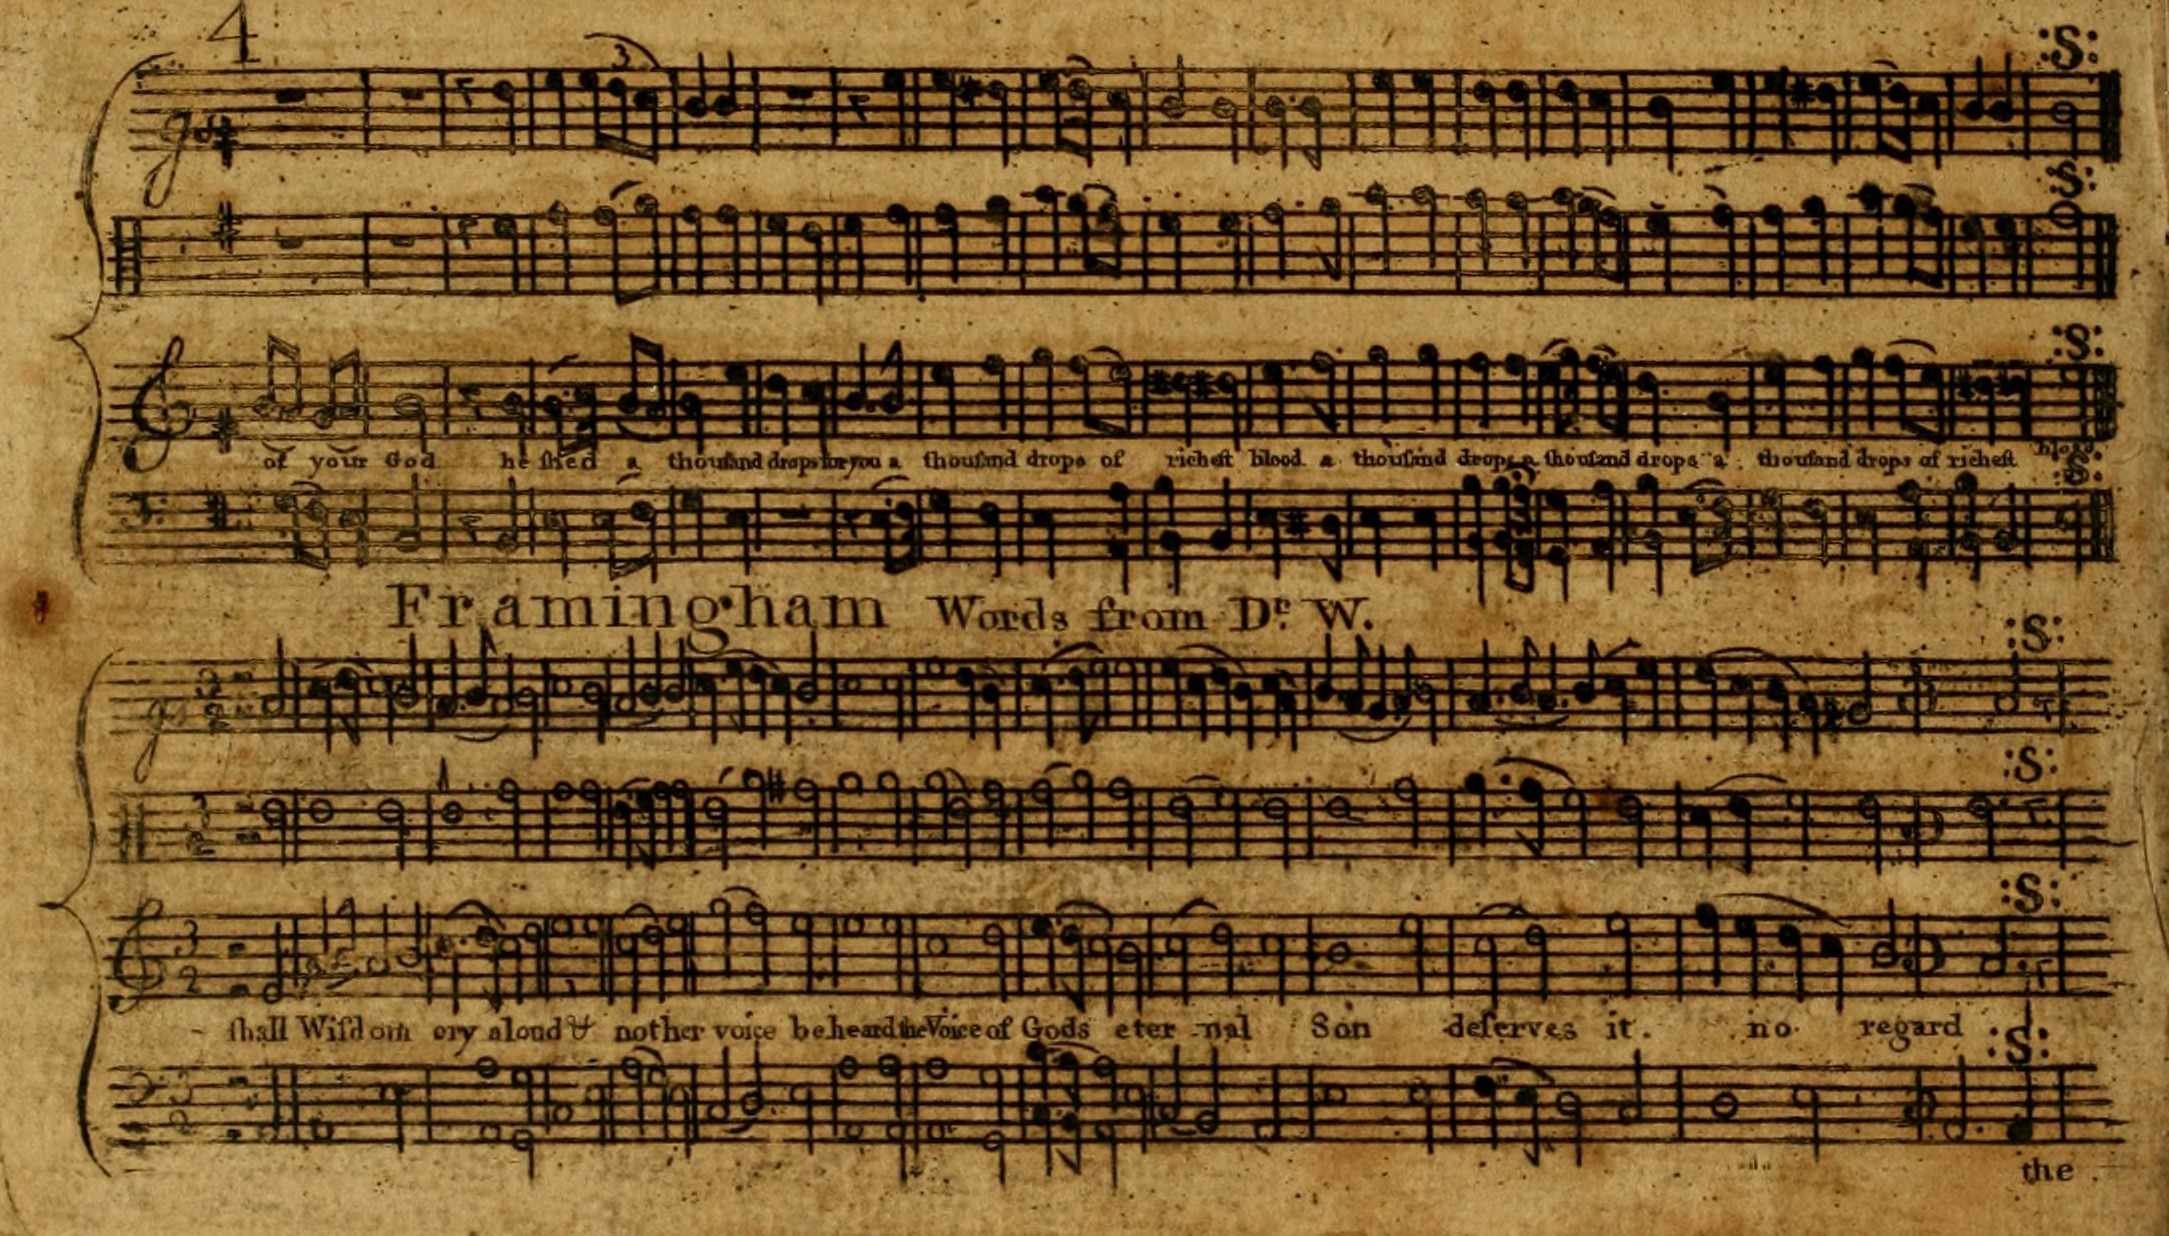 4
3
:S:
:S:
:S:
of your God he ſhed a thouſand drops for you a thouſand drops of richeſt blood a thouſand drops a thouſand drops a thouſand drops of richeſt blood
:S:
Framingham Words from Dr. W.
:S:
3 2
:S:
3 2
:S:
3 2
ſhall Wiſdom cry aloud & not her voice be heard the Voice of Gods eter nal Son deſerves it no regard
:S:
3 2
the